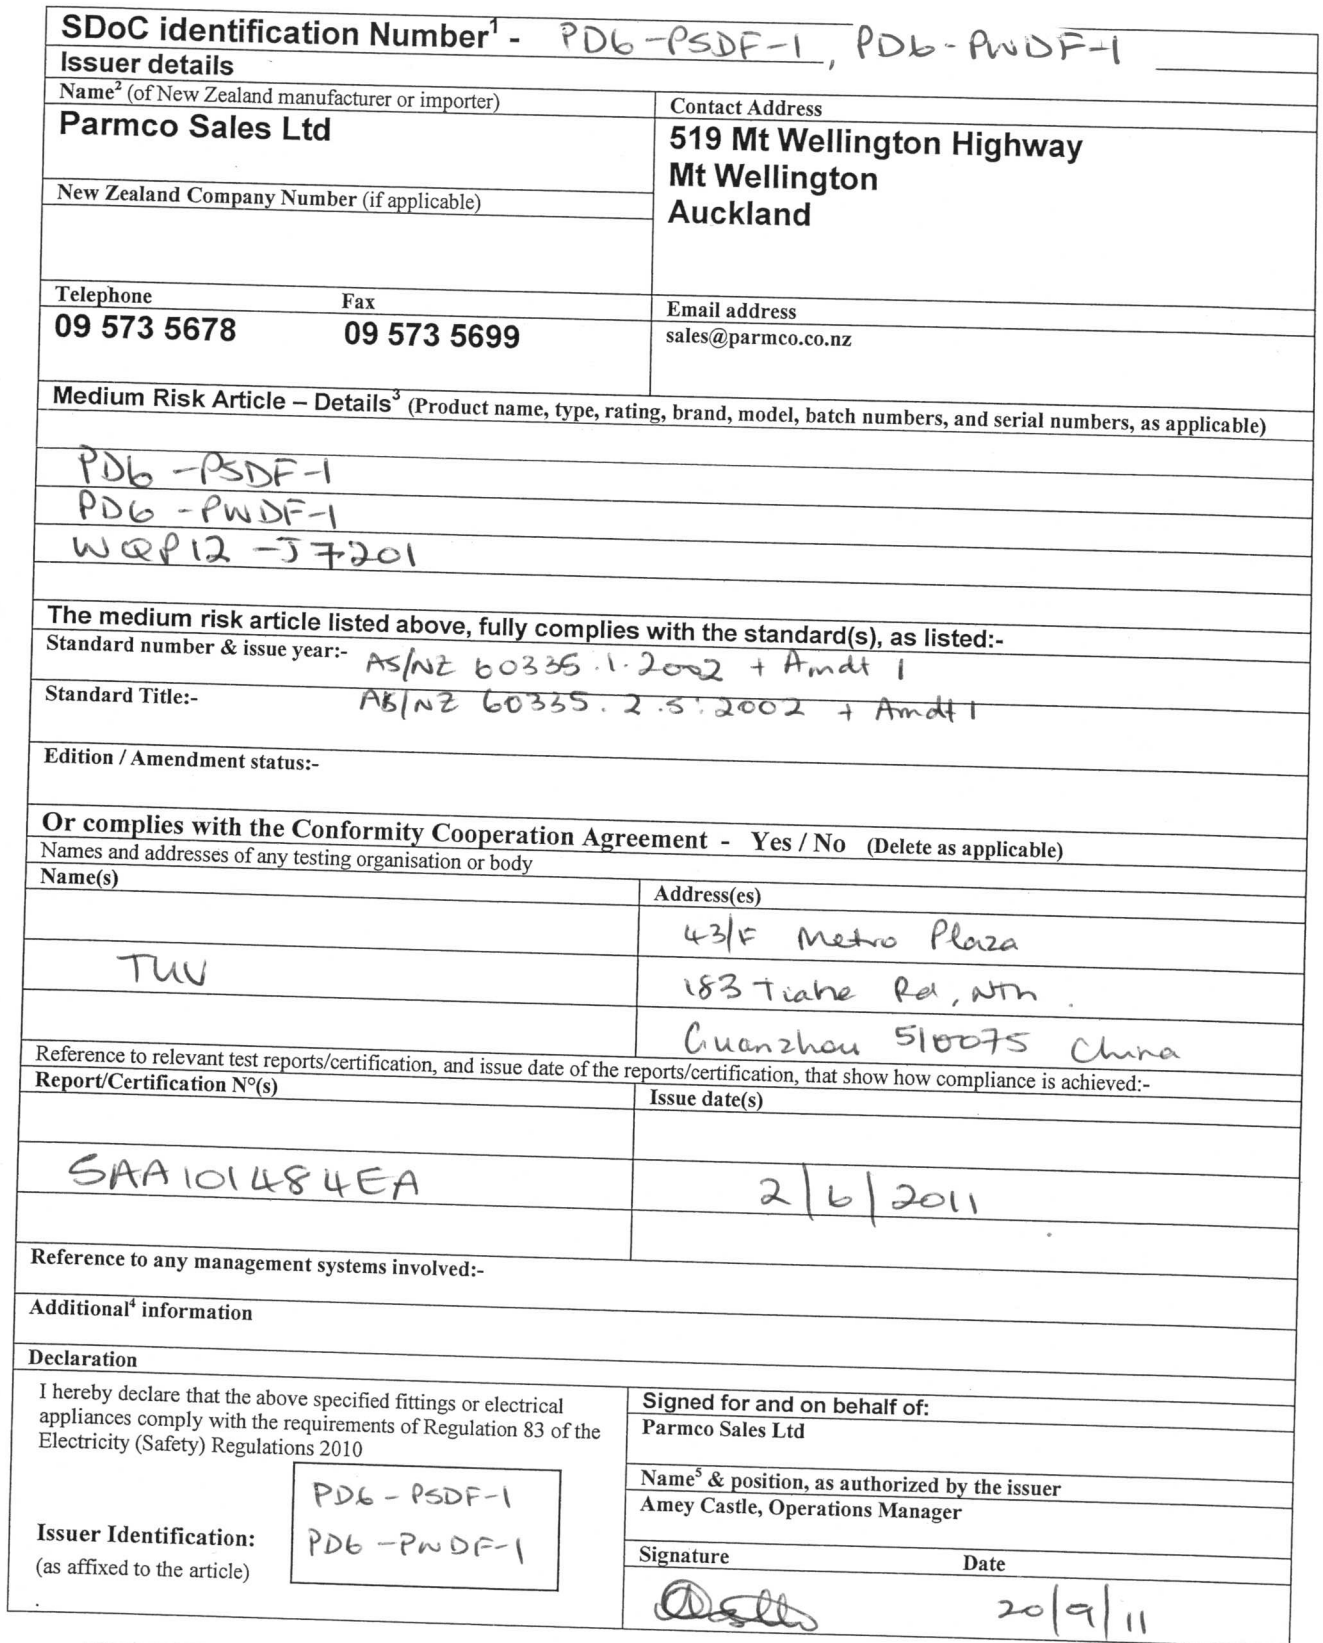 SDoC identification Number¹ - PD6-PSDF-1, PD6-PWDF-1
Issuer details
Name² (of New Zealand manufacturer or importer)
Parmco Sales Ltd
Contact Address
519 Mt Wellington Highway
Mt Wellington
Auckland
New Zealand Company Number (if applicable)
Telephone Fax
09 573 5678 09 573 5699
Email address
sales@parmco.co.nz
Medium Risk Article – Details³ (Product name, type, rating, brand, model, batch numbers, and serial numbers, as applicable)
PD6-PSDF-1
PD6-PWDF-1
WQP12-J7201
The medium risk article listed above, fully complies with the standard(s), as listed:-
Standard number & issue year:- AS/NZ 60335.1.2002 + Amdt 1
Standard Title:- AS/NZ 60335.2.5:2002 + Amdt 1
Edition / Amendment status:-
Or complies with the Conformity Cooperation Agreement - Yes / No (Delete as applicable)
Names and addresses of any testing organisation or body
Name(s)
Address(es)
43/F Metro Plaza
TUV
183 Tiahe Rd, Nth.
Guanzhou 510075 China
Reference to relevant test reports/certification, and issue date of the reports/certification, that show how compliance is achieved:-
Report/Certification N°(s)
Issue date(s)
SAA101484EA
2/6/2011
Reference to any management systems involved:-
Additional⁴ information
Declaration
I hereby declare that the above specified fittings or electrical
appliances comply with the requirements of Regulation 83 of the
Electricity (Safety) Regulations 2010
PD6-PSDF-1
PD6-PWDF-1
Issuer Identification:
(as affixed to the article)
Signed for and on behalf of:
Parmco Sales Ltd
Name⁵ & position, as authorized by the issuer
Amey Castle, Operations Manager
Signature Date
20/9/11